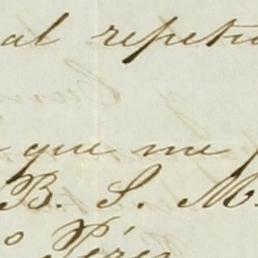 al repeti
que me
B. S. M.
Pérez